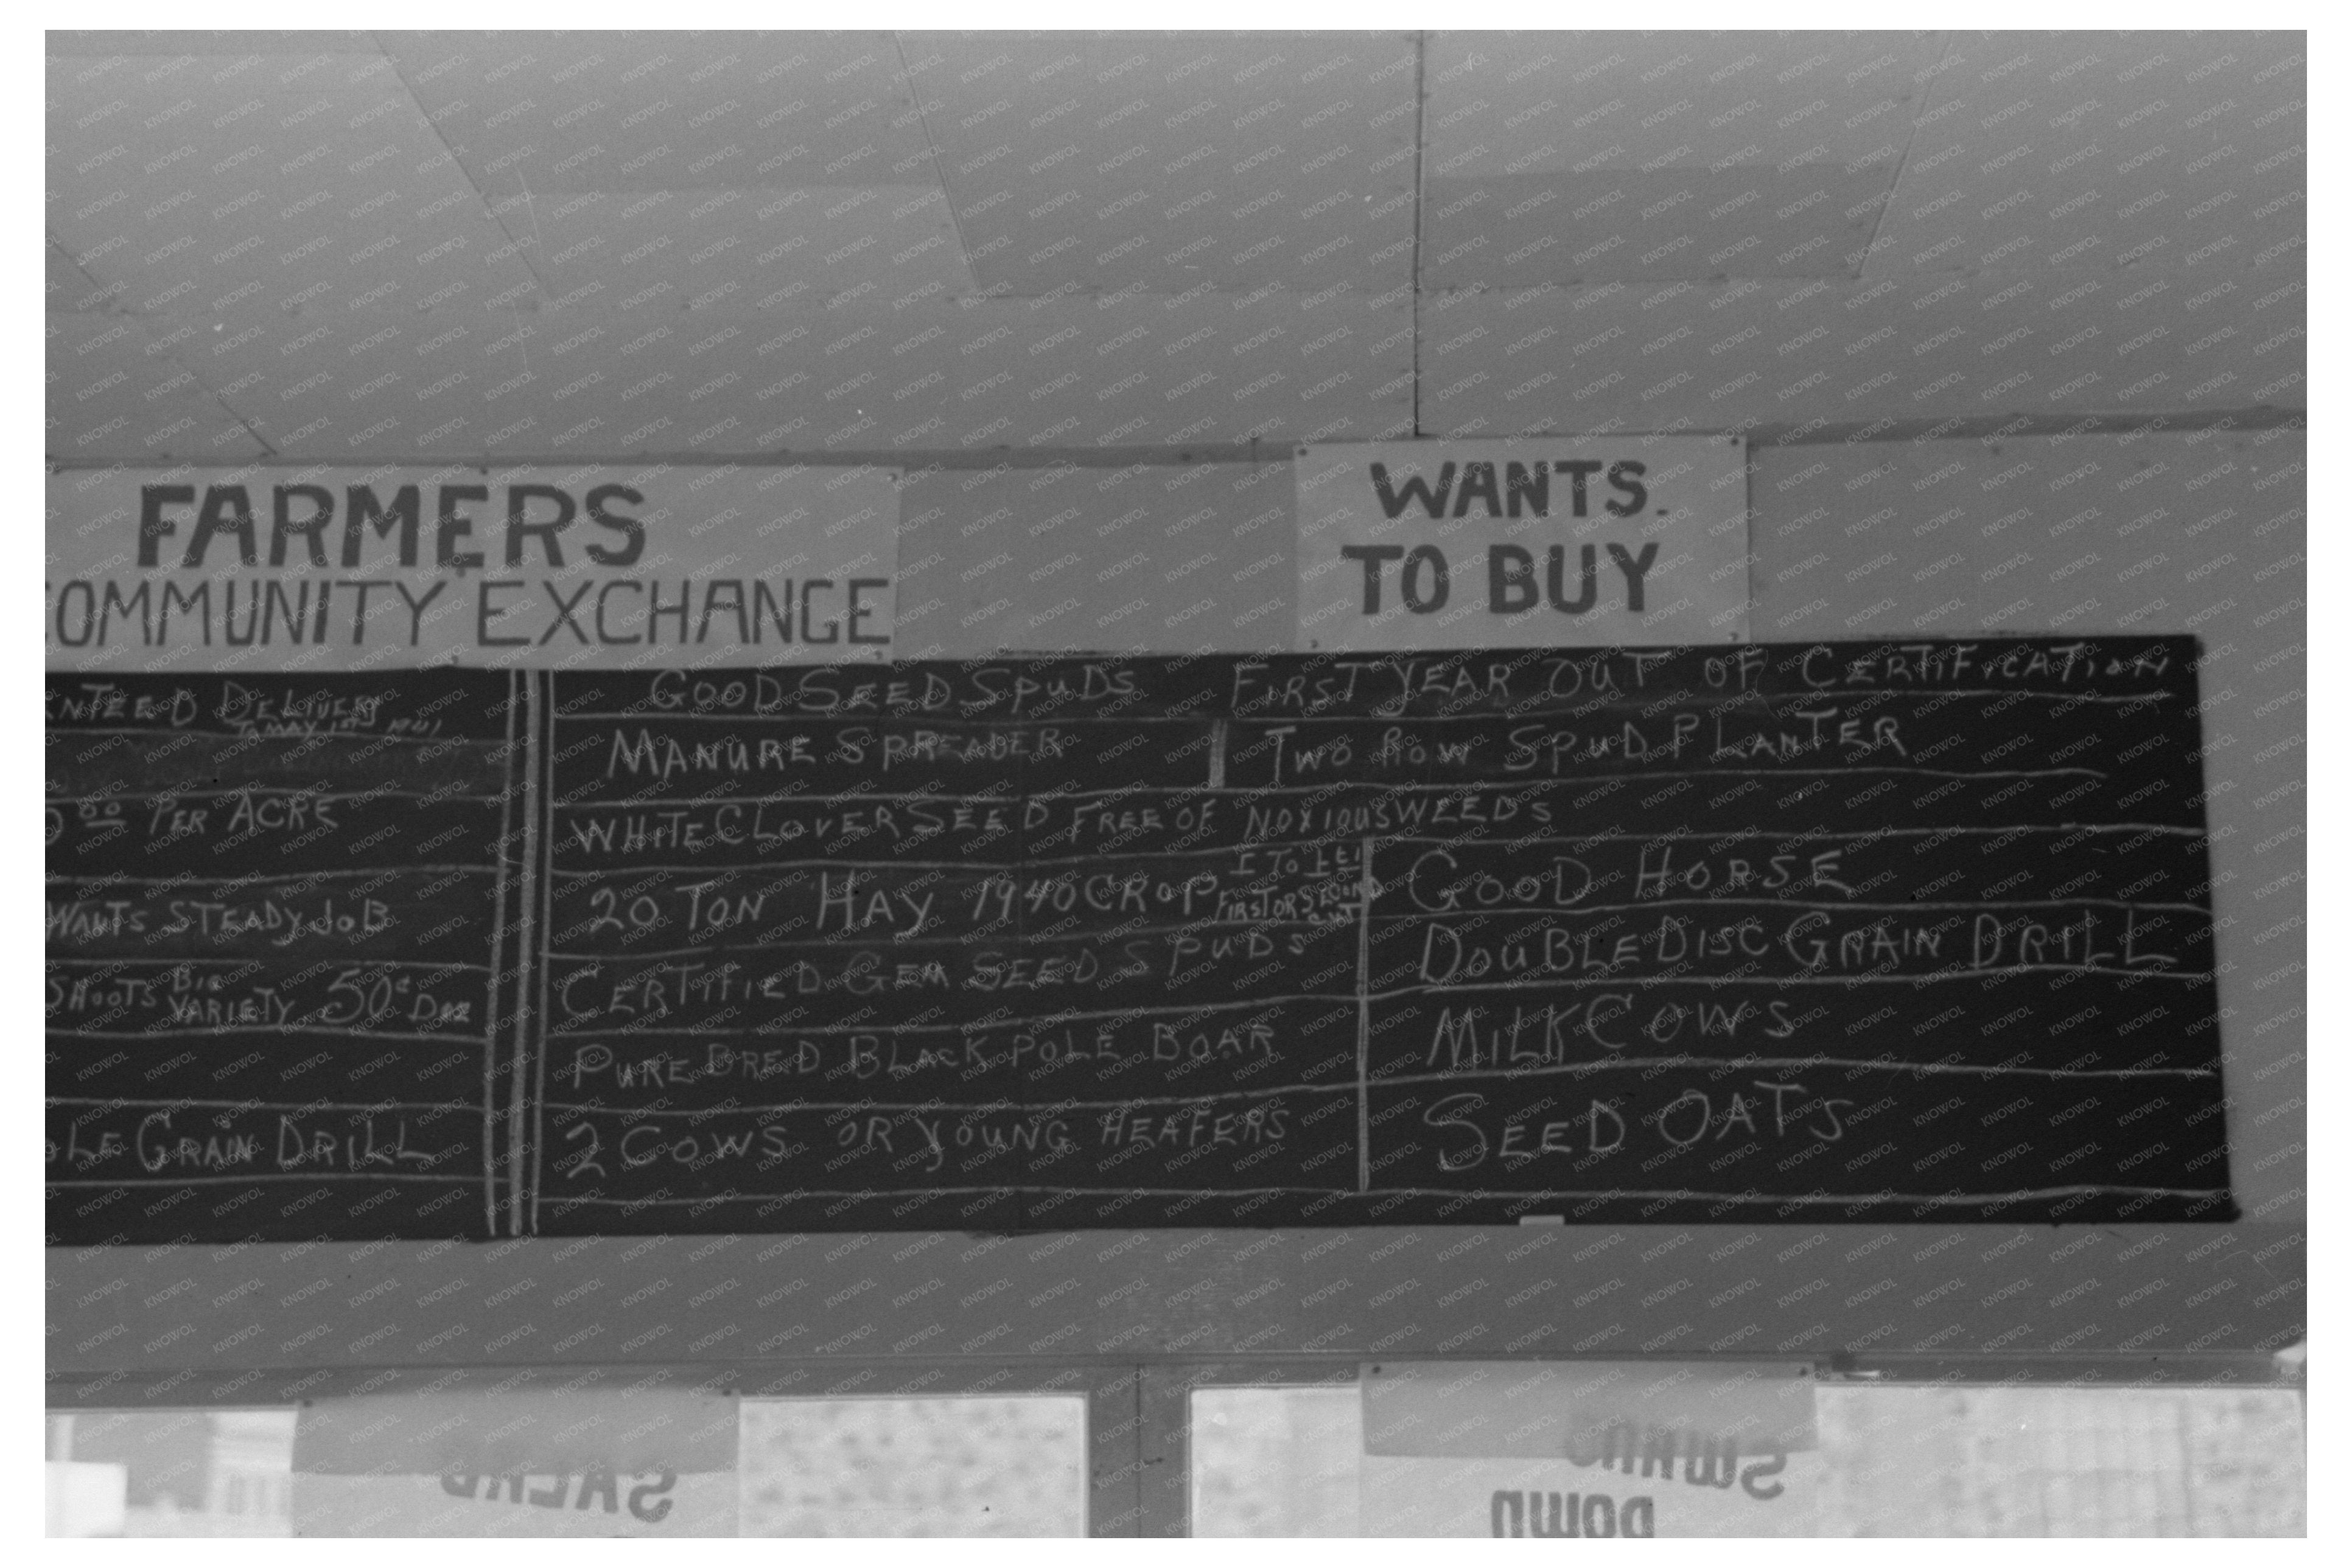 FARMERS
COMMUNITY EXCHANGE
WANTS.
TO BUY
NTEED DELIVERY
TO MAY 1ST 1941
00 PER ACRE
WANTS STEADY JOB
SHOOTS BIG VARIETY 50¢ DOZ
LE GRAIN DRILL
GOOD SEED SPUDS FIRST YEAR OUT OF CERTIFICATION
MANURE SPREADER TWO ROW SPUD PLANTER
WHITE CLOVER SEED FREE OF NOXIOUS WEEDS
20 TON HAY 1940 CROP FIRST OR SECOND CUT
CERTIFIED GEM SEED SPUDS
PURE BRED BLACK POLE BOAR
2 COWS OR YOUNG HEAFERS
GOOD HORSE
DOUBLE DISC GRAIN DRILL
MILK COWS
SEED OATS
SALAD
SWANS
DOWN
KNOWOL